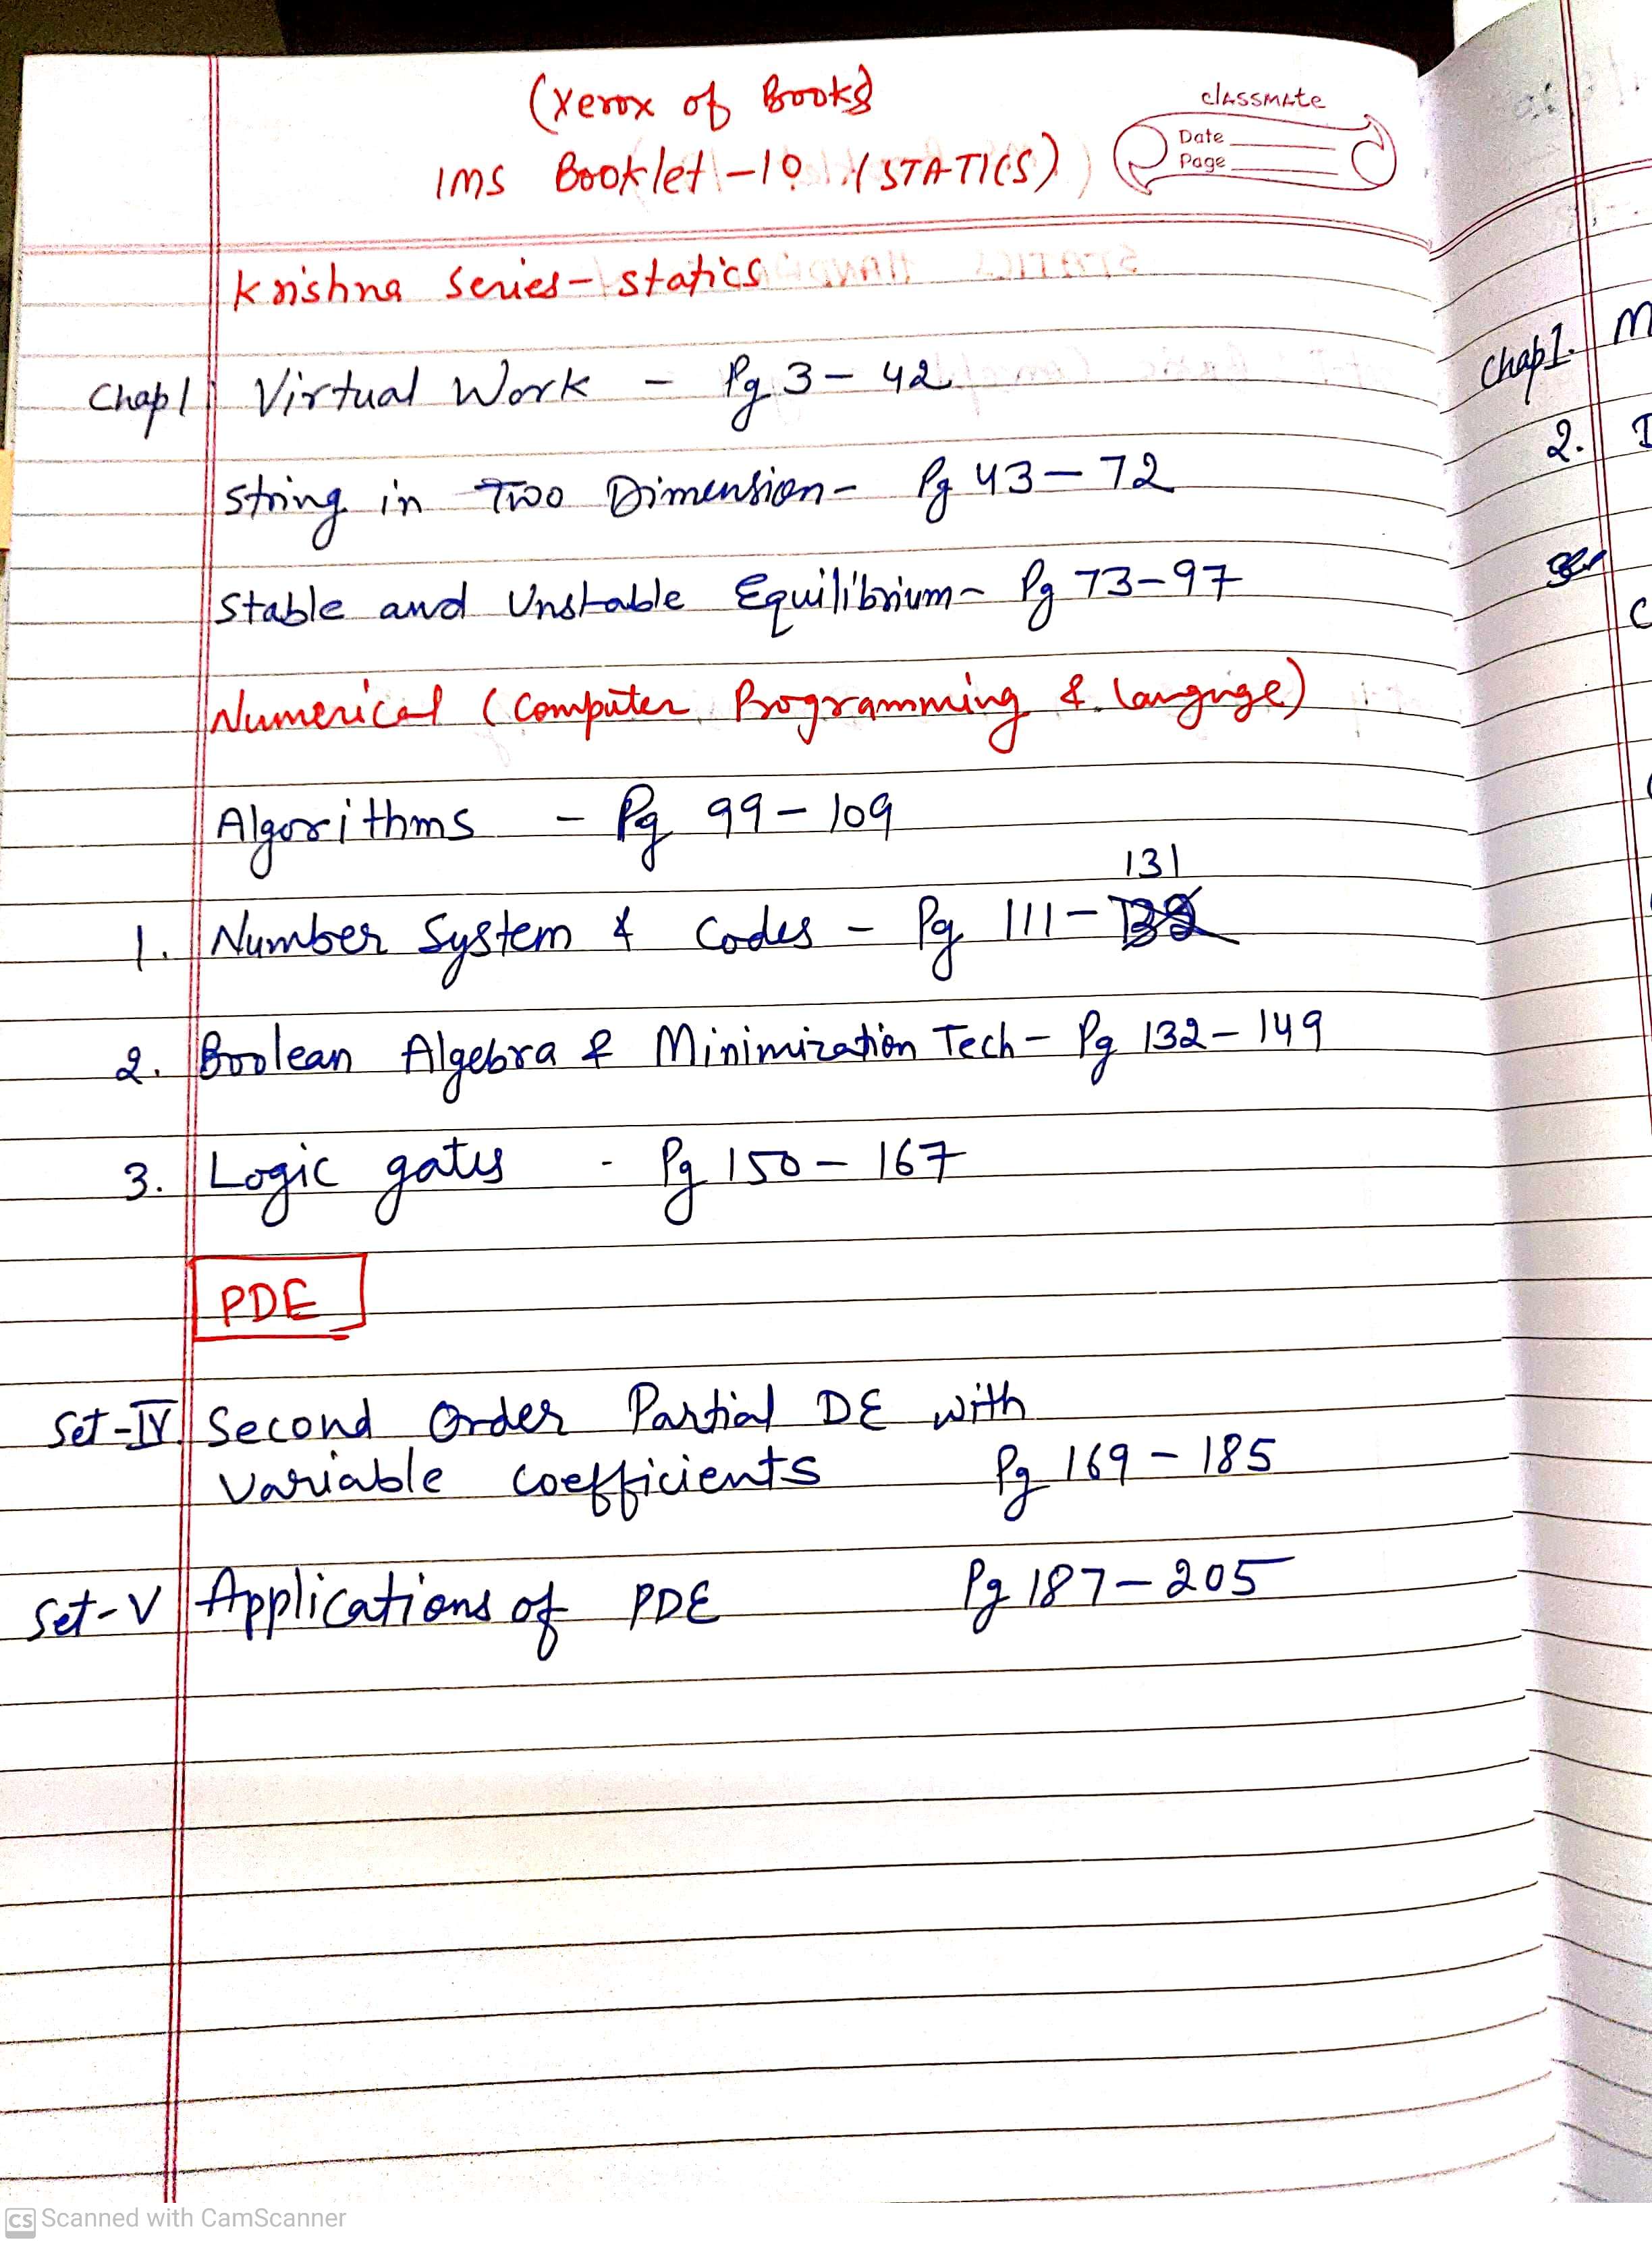 (Xerox of Books)
IMS Booklet-10 (STATICS)
classmate
Date
Page
Krishna Series - Statics
Chap 1 Virtual Work - Pg 3-42
String in Two Dimension - Pg 43-72
Stable and Unstable Equilibrium - Pg 73-97
Numerical (Computer Programming & languge)
Algorithms - Pg 99-109
1. Number System & Codes - Pg 111-131
2. Boolean Algebra & Minimization Tech - Pg 132-149
3. Logic gates - Pg 150-167
PDE
Set-IV Second Order Partial DE with
variable coefficients Pg 169-185
Set-V Applications of PDE Pg 187-205
Chap 1.
2.
CS Scanned with CamScanner